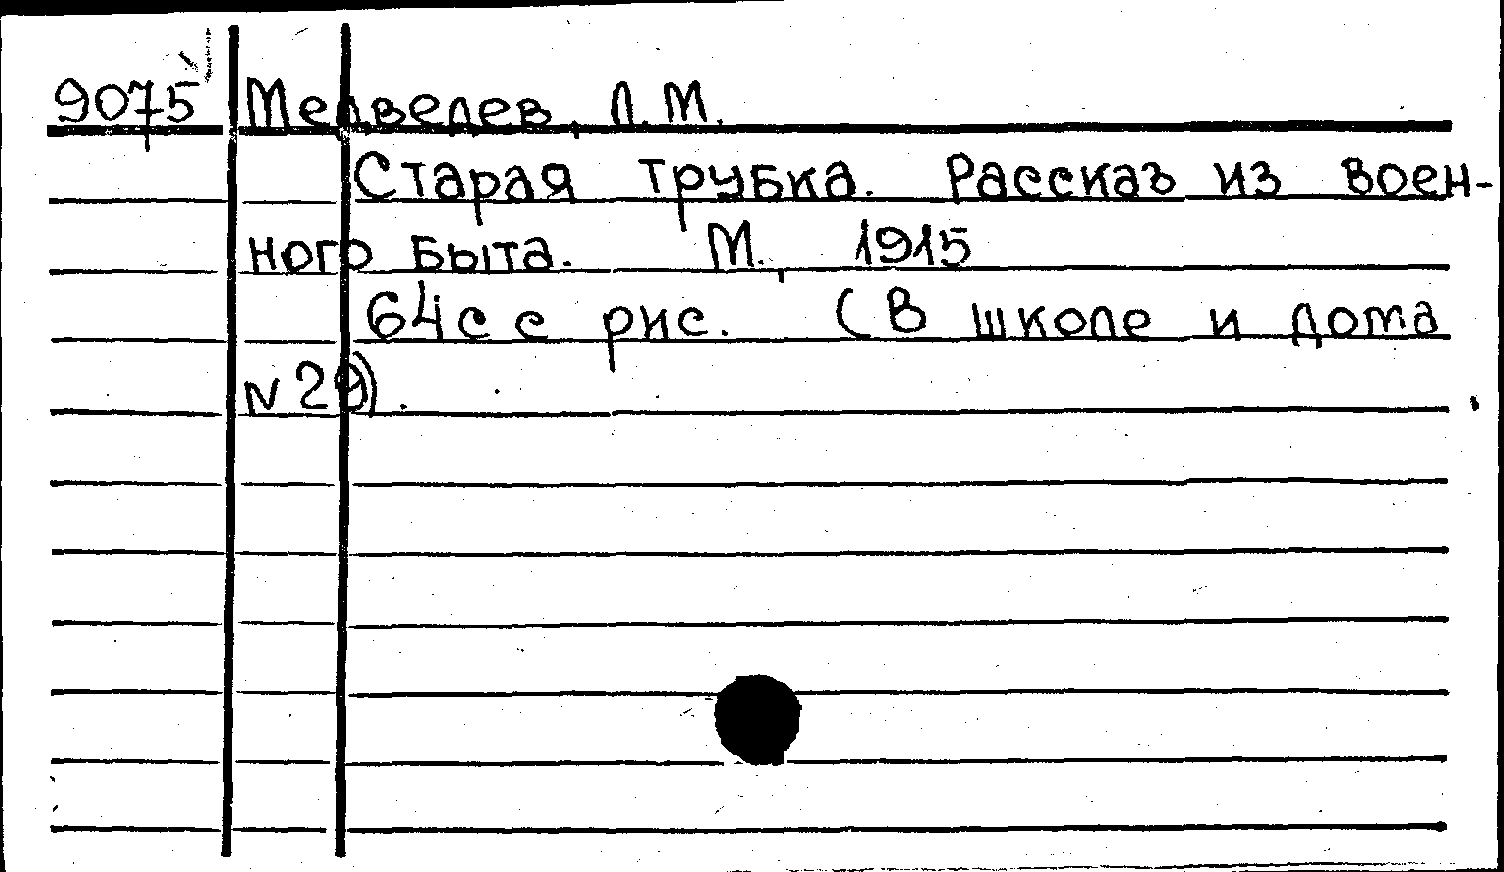 9075 Медведев, Л.М.
Старая трубка. Рассказ из воен-
ного быта. М., 1915
64с с рис. (В школе и дома
N 29).